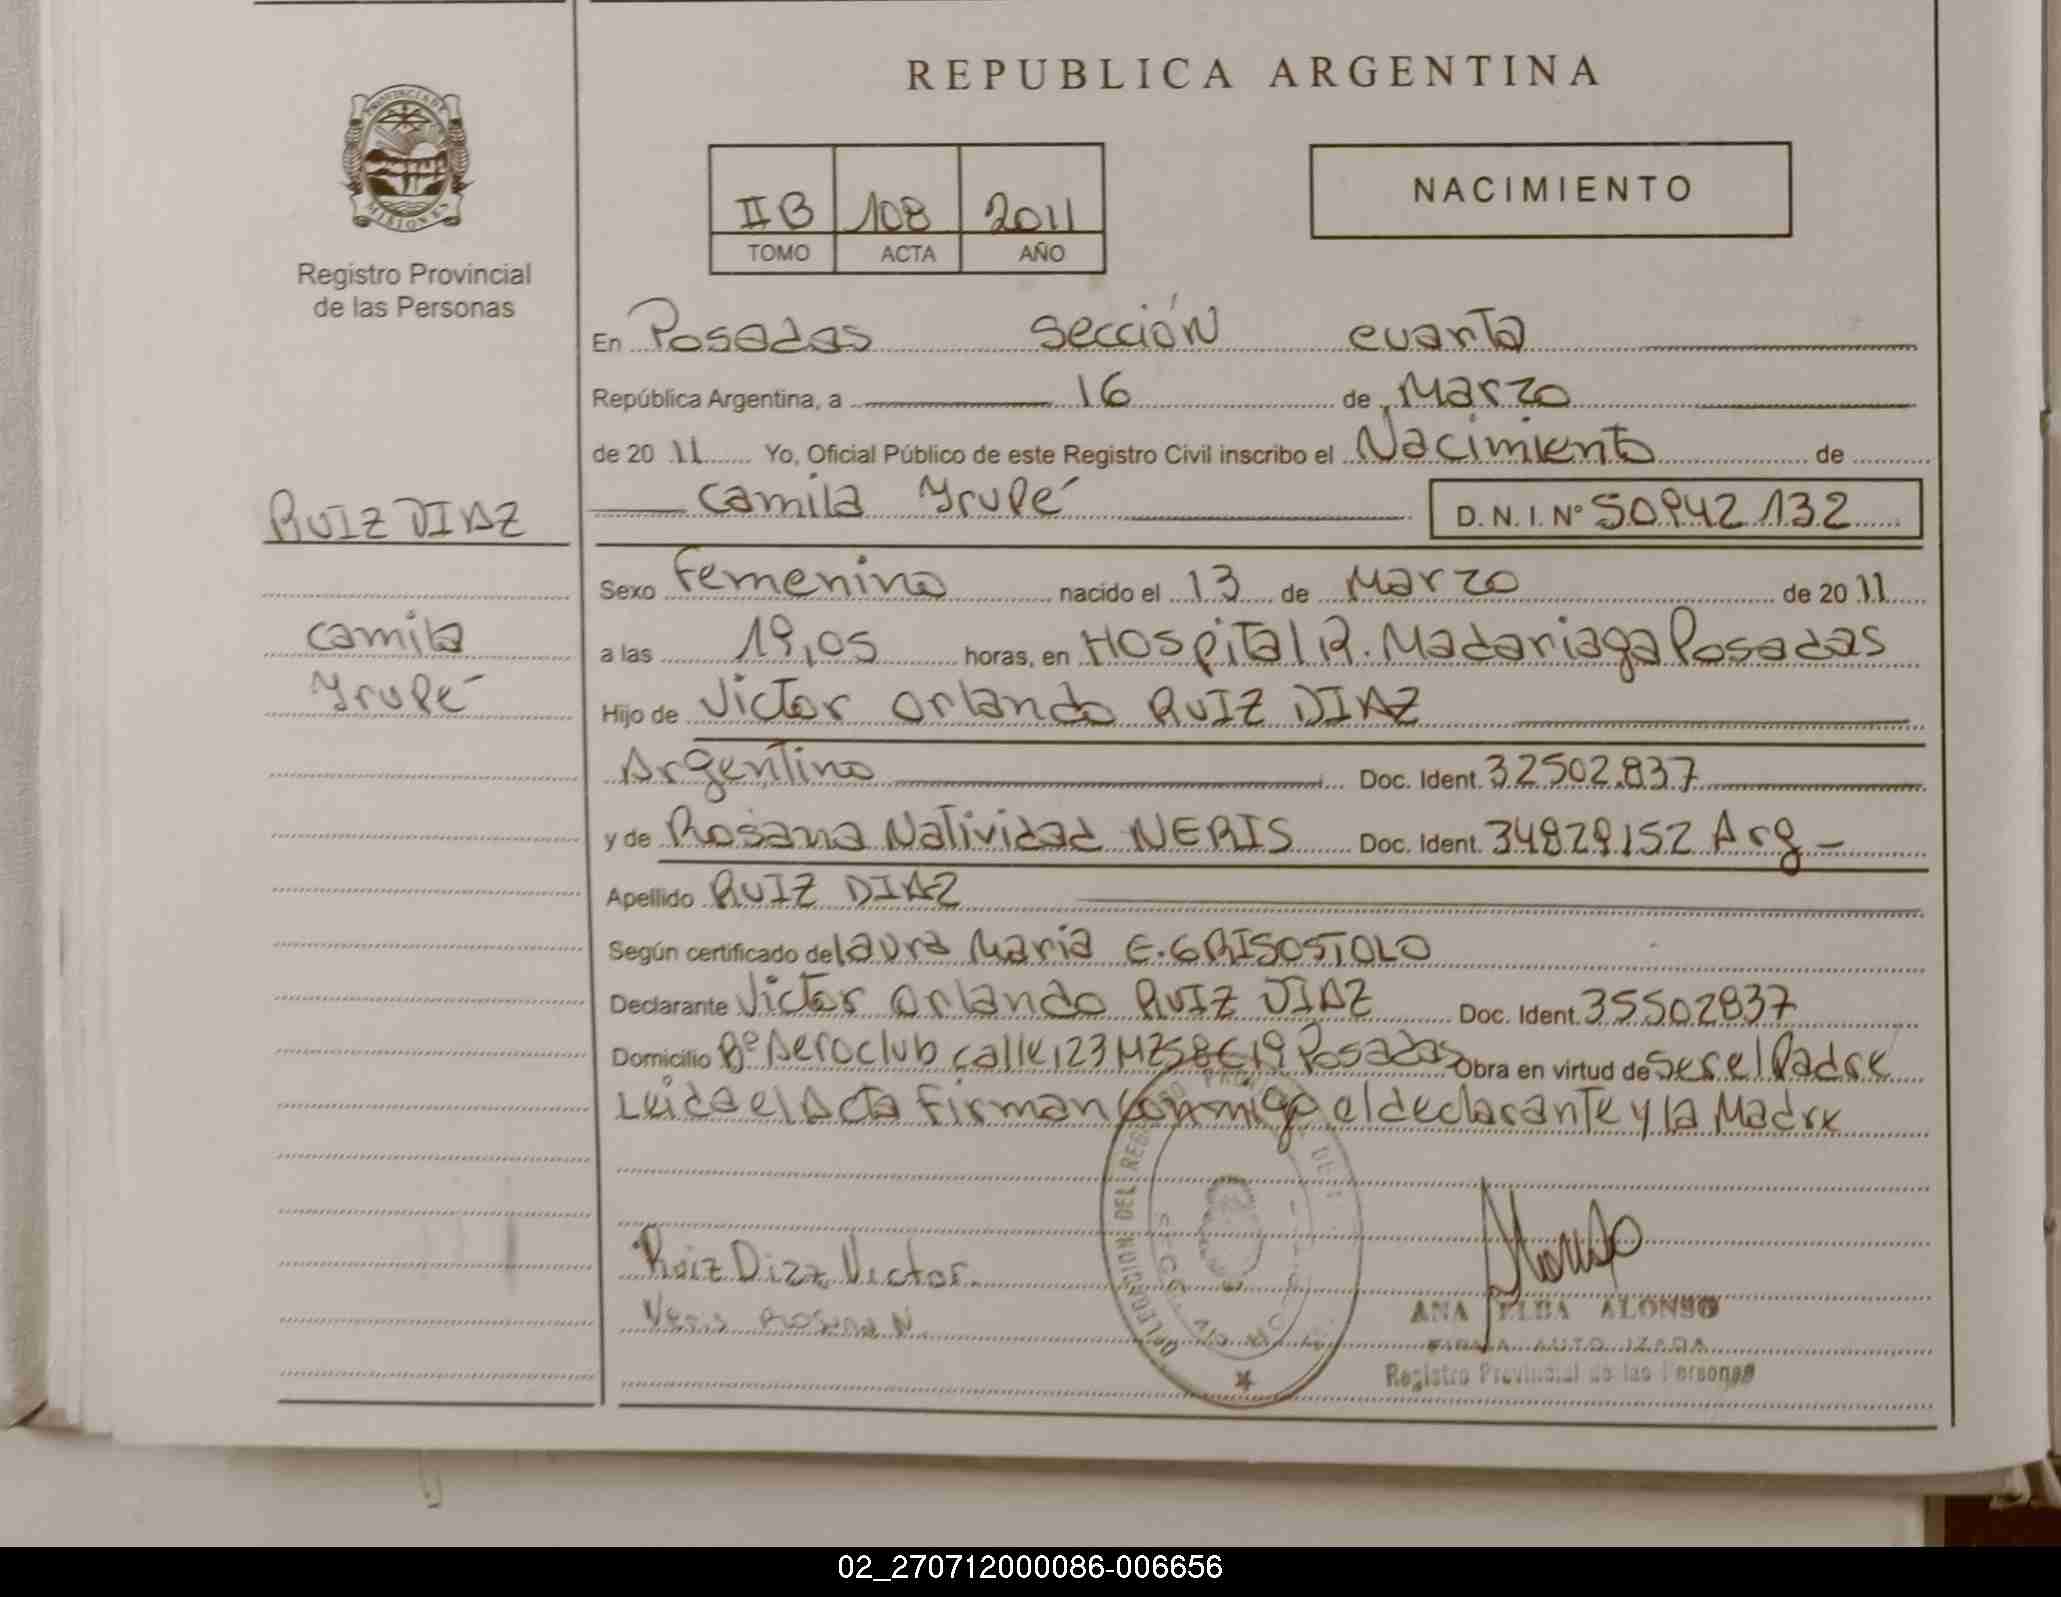 REPUBLICA ARGENTINA
PROVINCIA DE
MISIONES
Registro Provincial
de las Personas
II B 108 2011
TOMO ACTA AÑO
NACIMIENTO
En Posadas sección cuarta
República Argentina, a 16 de Marzo
de 20 11 Yo, Oficial Público de este Registro Civil inscribo el Nacimiento de
Camila Yrupé D.N.I. Nº 50942132
RUIZ DIAZ
Camila
Yrupé
Sexo Femenino nacido el 13 de Marzo de 20 11
a las 19,05 horas, en Hospital R. Madariaga Posadas
Hijo de Victor Orlando RUIZ DIAZ
Argentino Doc. Ident. 32502.837
y de Rosana Natividad NERIS Doc. Ident. 34829152 Arg
Apellido RUIZ DIAZ
Según certificado de laura Maria E. GRISOSTOLO
Declarante Victor Orlando RUIZ DIAZ Doc. Ident. 35502837
Domicilio Bº Aeroclub calle 123 Mz 58 C 19 Posadas Obra en virtud de ser el Padre
Leida el Acta Firman conmigo el declarante y la Madre
Ruiz Diaz Victor
Neris Rosana N.
DELEGACION DEL
ANA ELBA ALONSO
FIRMA AUTORIZADA
Registro Provincial de las Personas
02_270712000086-006656